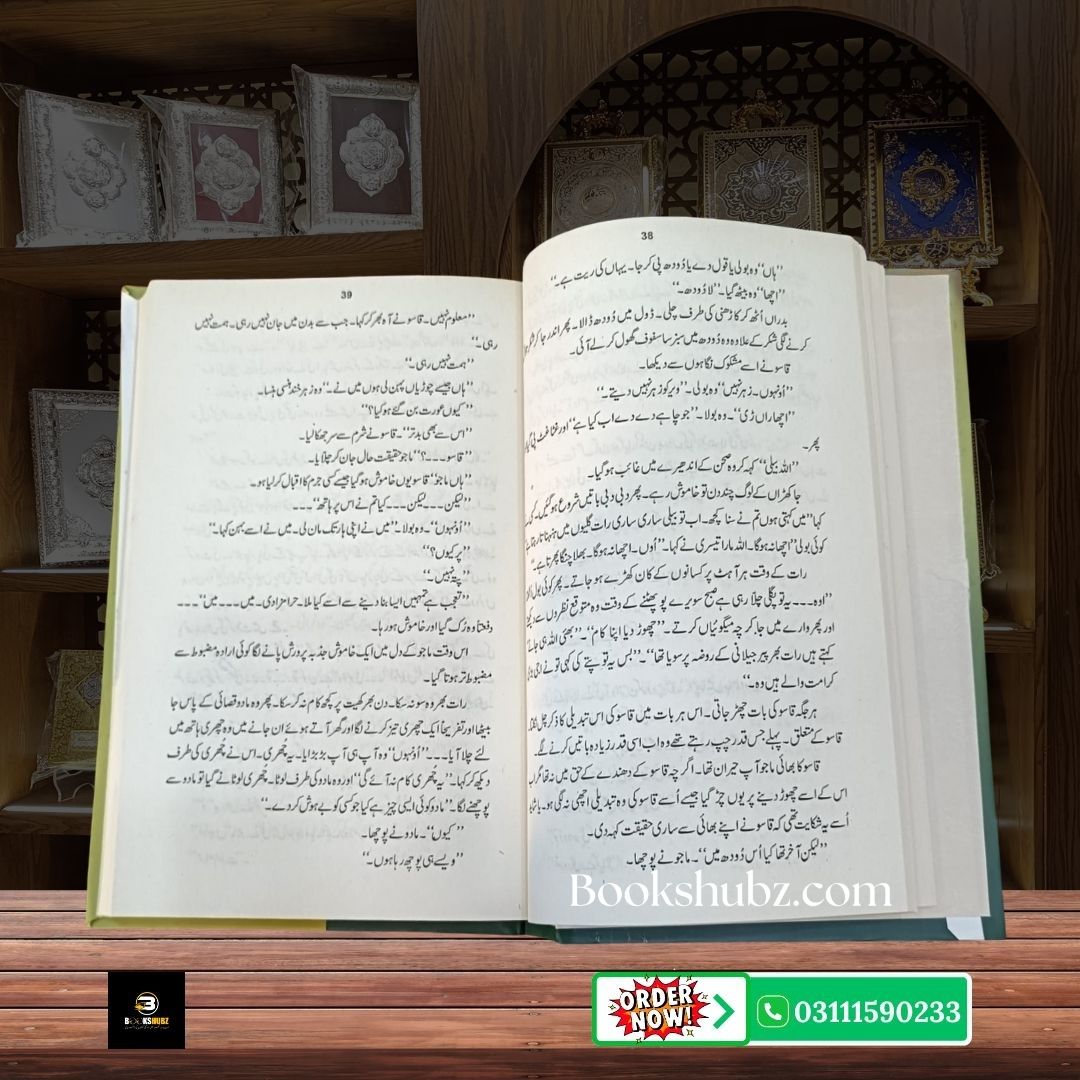 38
"ہاں" وہ بولی یا قول دے یا دُودھ پی کر جا۔ یہاں کی ریت ہے۔"
"اچھا" وہ بیٹھ گیا۔ "لا دُودھ۔"
بدراں اُٹھ کر کاڑھنی کی طرف چلی۔ ڈول میں دودھ ڈالا۔ پھر اندر جا کر
کرنے لگی شکر کے علاوہ وہ دُودھ میں سبز سا سفوف گھول کر لے آئی۔
قاسو نے اسے مشکوک نگاہوں سے دیکھا۔
"اُونہوں۔ زہر نہیں" وہ بولی۔ "ویر کو زہر نہیں دیتے۔"
"اچھا راں ڑی"۔ وہ بولا۔ "جو چاہے دے دے اب کیا ہے" اور غٹا غٹ پی گیا
پھر۔
"اللہ بیلی" کہہ کر وہ صحن کے اندھیرے میں غائب ہو گیا۔
جاکھڑاں کے لوگ چند دن تو خاموش رہے۔ پھر دبی دبی باتیں شروع ہو گئیں۔
کہا "میں کہتی ہوں تم نے سنا کچھ۔ اب تو بیلی ساری ساری رات گلیوں میں ہنہناتا رہتا ہے
کوئی بولی "اچھا نہ ہوگا۔ اللہ مارا تیسری نے کہا۔ "اُوں۔ اچھا نہ ہوگا۔ بھلا چنگا پھرتا ہے۔"
رات کے وقت ہر آہٹ پر کسانوں کے کان کھڑے ہو جاتے۔ پھر کوئی بول
"اوہ۔۔۔ یہ تو پگلی چلّا رہی ہے صبح سویرے پو پھٹنے کے وقت وہ متوقع نظروں سے
اور پھر وارے میں جا کر چہ میگوئیاں کرتے۔ "چھوڑ دیا اپنا کام"۔ "بھئی اللہ ہی جانے
کہتے ہیں رات بھر پیر جیلانی کے روضہ پر سویا تھا"۔ "بس یہ تو پتے کی کہی تو نے
کرامت والے ہیں وہ۔"
ہر جگہ قاسو کی بات چھڑ جاتی۔ اس ہر بات میں قاسو کی اس تبدیلی کا ذکر چل نکلتا
قاسو کے متعلق۔ پہلے جس قدر چپ رہتے تھے وہ اب اسی قدر زیادہ باتیں کرنے لگے۔
قاسو کا بھائی ماجو آپ حیران تھا۔ اگرچہ قاسو کے دھندے کے حق میں نہ تھا مگر اب
اس کے اسے چھوڑ دینے پر یوں چڑ گیا جیسے اُسے قاسو کی وہ تبدیلی اچھی نہ لگی ہو۔ یا شاید
اُسے یہ شکایت تھی کہ قاسو نے اپنے بھائی سے ساری حقیقت کہہ دی۔
"لیکن آخر تھا کیا اُس دُودھ میں"۔ ماجو نے پوچھا۔
39
"معلوم نہیں۔ قاسو نے آہ بھر کر کہا۔ جب سے بدن میں جان نہیں رہی۔ ہمت نہیں
رہی۔"
"ہمت نہیں رہی۔"
"ہاں جیسے چوڑیاں پہن لی ہوں میں نے۔" وہ زہر خند ہنسی ہنسا۔
"کیوں عورت بن گئے ہو کیا؟"
"اس سے بھی بدتر"۔ قاسو نے شرم سے سر جھکا لیا۔
"قاسو۔۔۔؟" ماجو حقیقت حال جان کر چلایا۔
"ہاں ماجو" قاسو یوں خاموش ہو گیا جیسے کسی جرم کا اقبال کر لیا ہو۔
"لیکن۔۔۔ لیکن۔۔۔ کیا تم نے اس پر ہاتھ"۔۔۔
"اُونہوں"۔ وہ بولا۔ "میں نے اپنی ہار تک مان لی۔ میں نے اسے بہن کہا۔"
"پر کیوں؟"
"پتہ نہیں۔"
"تعجب ہے تمہیں ایسا بنا دینے سے اسے کیا ملا۔ حرامزادی۔ میں۔۔۔ میں"۔۔۔
دفعتا وہ رُک گیا اور خاموش ہو رہا۔
اس وقت ماجو کے دل میں ایک خاموش جذبہ پرورش پانے لگا کوئی ارادہ مضبوط سے
مضبوط تر ہوتا گیا۔
رات بھر وہ سو نہ سکا۔ دن بھر کھیت پر کچھ کام نہ کر سکا۔ پھر وہ مادو قصائی کے پاس جا
بیٹھا اور تفریحاً ایک چھری تیز کرنے لگا اور گھر آتے ہوئے ان جانے میں وہ چھری ہاتھ میں
لئے چلا آیا۔۔۔ "اُونہوں" وہ آپ ہی آپ بڑبڑایا۔ یہ چھری۔ اس نے چھری کی طرف
دیکھ کر کہا۔ "یہ چھری کام نہ آئے گی" اور وہ مادو کی طرف لوٹا۔ چھری لوٹانے گیا تو مادو سے
پوچھنے لگا۔ "مادو کوئی ایسی چیز ہے کیا جو کسی کو بے ہوش کر دے۔"
"کیوں"۔ مادو نے پوچھا۔
"ویسے ہی پوچھ رہا ہوں۔"
Bookshubz.com
BOOKSHUBZ
ORDER NOW!
03111590233